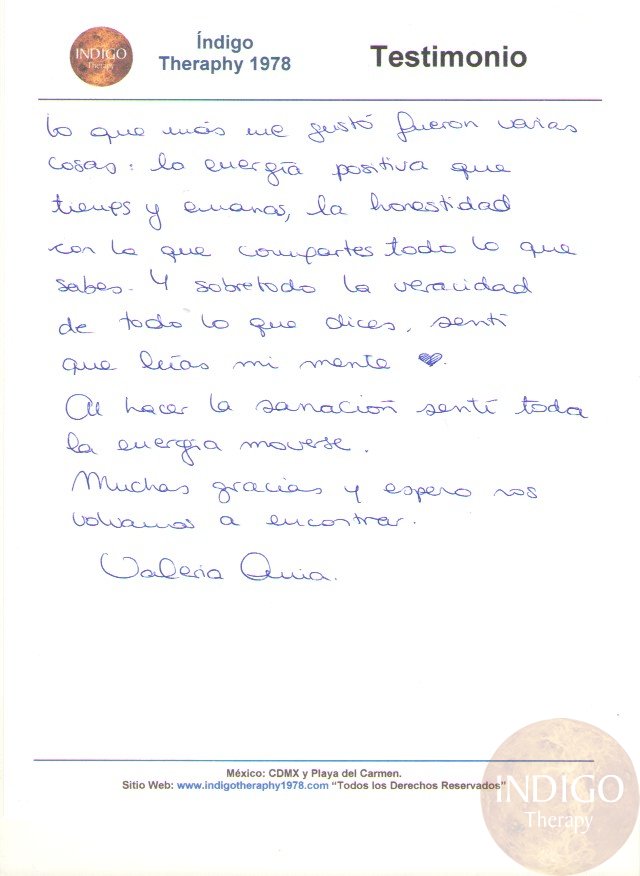 INDIGO
Therapy
Índigo
Theraphy 1978
Testimonio
Lo que más me gustó fueron varias
cosas: la energía positiva que
tienes y emanas, la honestidad
con la que compartes todo lo que
sabes. Y sobretodo la veracidad
de todo lo que dices, sentí
que leías mi mente ♥.
Al hacer la sanación sentí toda
la energía moverse.
Muchas gracias y espero nos
volvamos a encontrar.
Valeria
México: CDMX y Playa del Carmen.
Sitio Web: www.indigotheraphy1978.com “Todos los Derechos Reservados”
INDIGO
Therapy